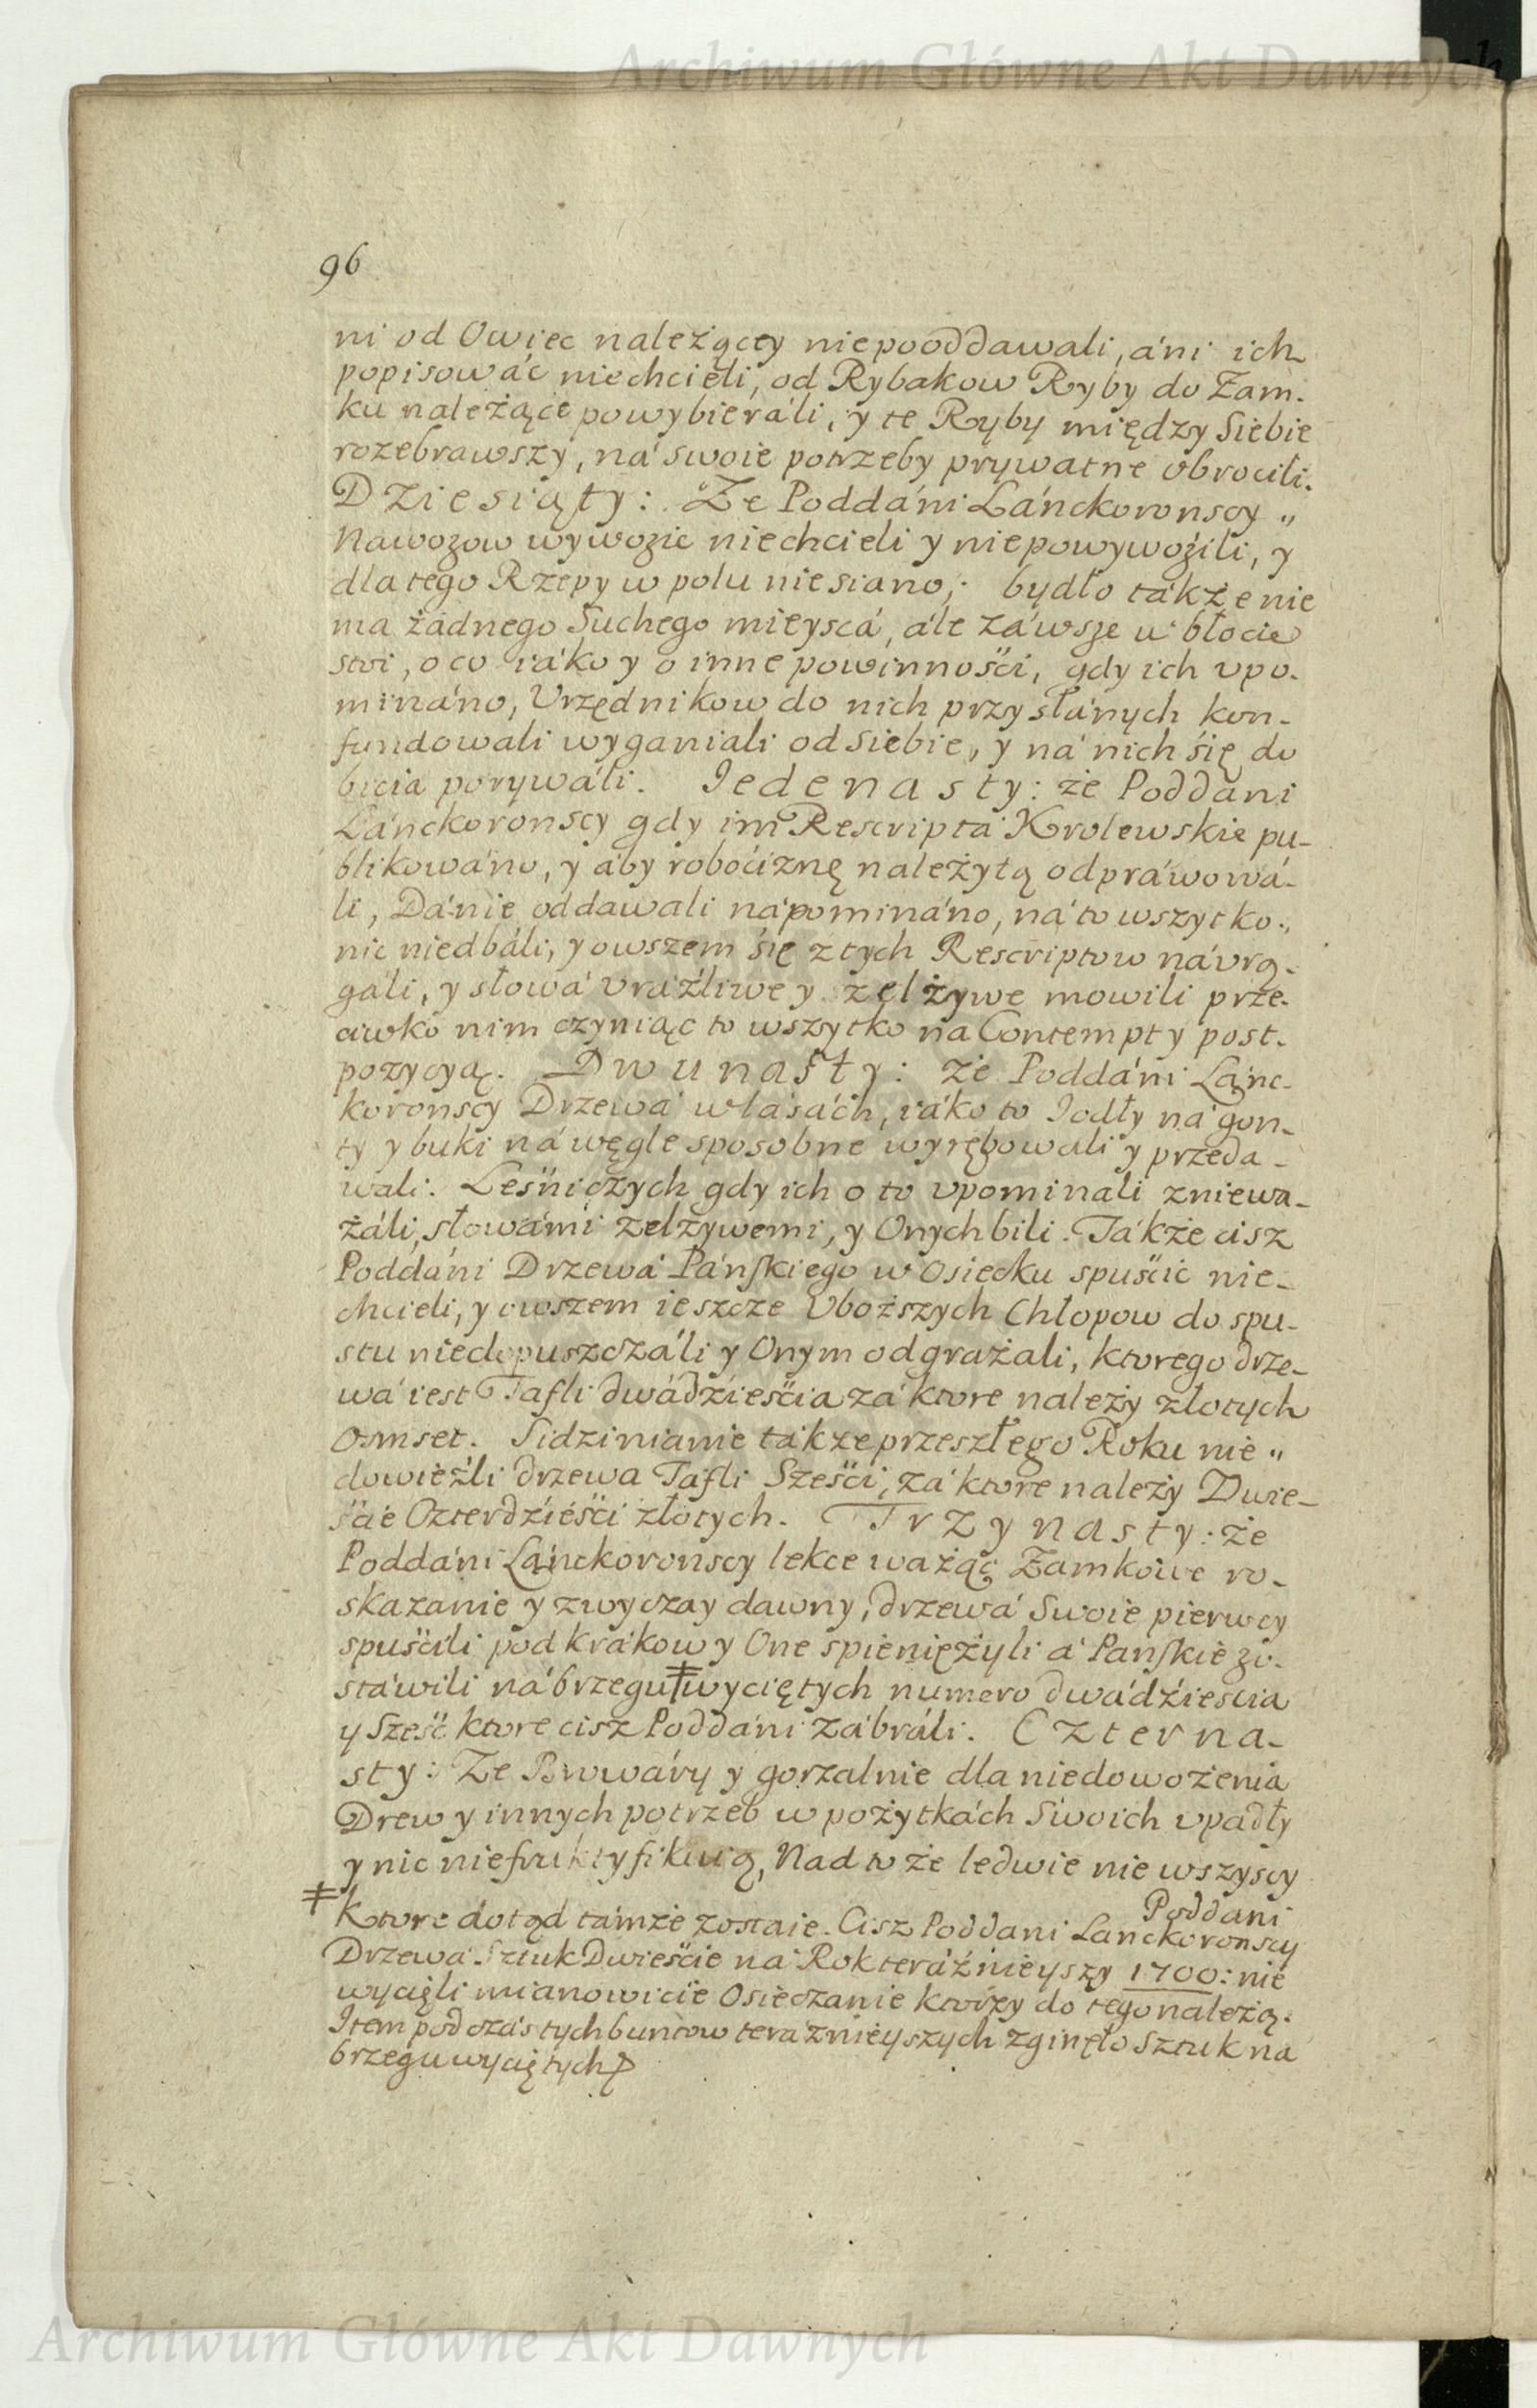 Archiwum Główne Akt Dawnych
96
ni od Owiec należącey niepooddawali, áni ich
popisowáć niechcieli, od Rybakow Ryby do Zam-
ku należące powybieráli, y te Ryby między Siebie
rozebrawszy, ná swoie potrzeby prywatne obrocili.
Dziesiąty: Że Poddáni Lánckoronscy „
Nawozow wywozic niechcieli y niepowywoźili, y
dla tego Rzepy w polu niesiano; bydło tákże nie
ma żadnego Suchego mieyscá, ále záwsze w błocie
stoi, o co iáko y o inne powinnośći, gdy ich vpo-
mináno, Vrzędnikow do nich przysłánych kon-
fundowali wyganiali od siebie, y ná nich się do
bicia porywáli. Iedenasty: że Poddani
Lánckoronscy gdy im Rescriptá Krolewskie pu-
blikowáno, y áby robociznę należytą odpráwowá-
li, Dánie oddawali nápomináno, ná to wszytko.,
nic niedbáli, y owszem się z tych Rescriptow návrą-
gáli, y słowá vraźliwe y zelżywe mowili prze-
ciwko nim czyniąc to wszytko na Contempt y post-
pozycyą. Dwunasty: że Poddáni Lanc-
koronscy Drzewá w lásách, iáko to Iodły ná gon-
ty y buki ná węgle sposobne wyrębowali y przeda-
wali. Leśniczych gdy ich o to vpominali zniewa-
żáli, słowámi zelżywemi, y Onych bili. Tákże cisz
Poddáni Drzewá Páńskiego w Osiecku spuścic nie-
chcieli, y owszem ieszcze Vboższych Chłopow do spu-
stu niedopuszczáli y Onym odgrażali, ktorego drze-
wá iest Tafli dwádzieśćia zá ktore należy złotych
Osmset. Sidzinianie tákże przeszłego Roku nie „
dowieźli drzewa Tafli Sześći, zá ktore należy Dwie-
śćie Czterdźieśći złotych. Trzynasty: że
Poddáni Lánckoronscy lekce ważąc Zamkowe ro-
skazanie y zwyczay dawny, drzewá Swoie pierwey
spuśćili pod Krákow y One spieniężyli á Pańskie zo-
stáwili ná brzegu ‡ wyciętych numero dwádźiescia
y Sześć ktore cisz Poddáni zábráli. Czterna-
sty: Że Browáry y gorzalnie dla niedowożenia
Drew y innych potrzeb w pożytkách Swoich vpadły
y nic niefruktyfikuią, Nad to że ledwie nie wszyscy
Poddani
‡ Ktore dotąd támże zostaie. Cisz Poddani Lanckoronscy
Drzewá Sztuk Dwieśćie ná Rok teráźnieyszy 1700: nie
wycięli mianowicie Osieczanie ktorzy do tego należą.
Item podczás tych buntow teraznieyszych zgineło Sztuk na
brzegu wyciętych
Archiwum Główne Akt Dawnych